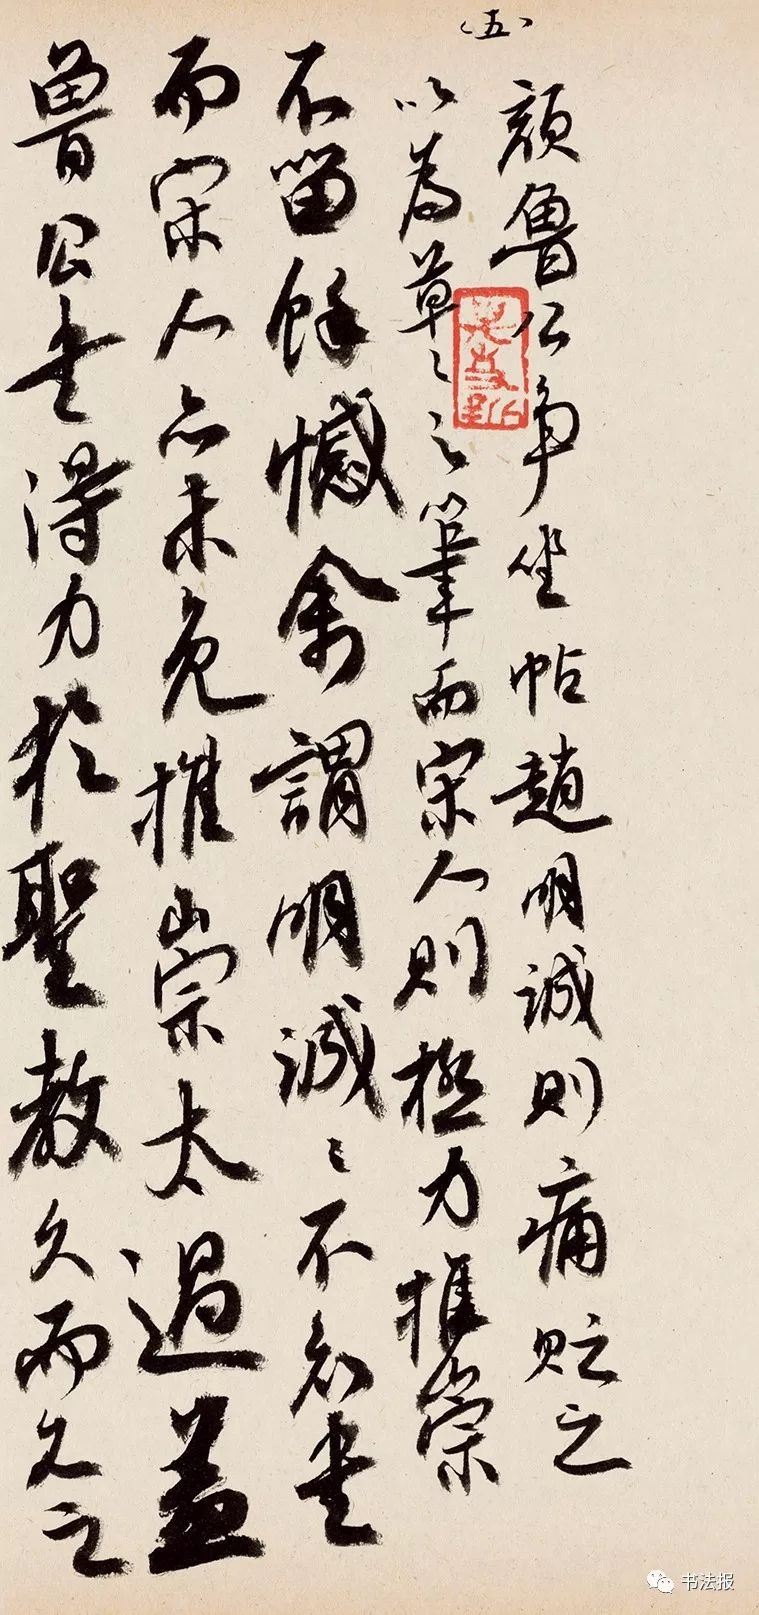 (五)
颜鲁公争坐帖赵明诚则痛贬之
以为草〻之笔而宋人则极力推崇
不留馀憾余谓明诚〻不知书
而宋人亦未免推崇太过盖
鲁公书得力于圣教久而久之
书法报